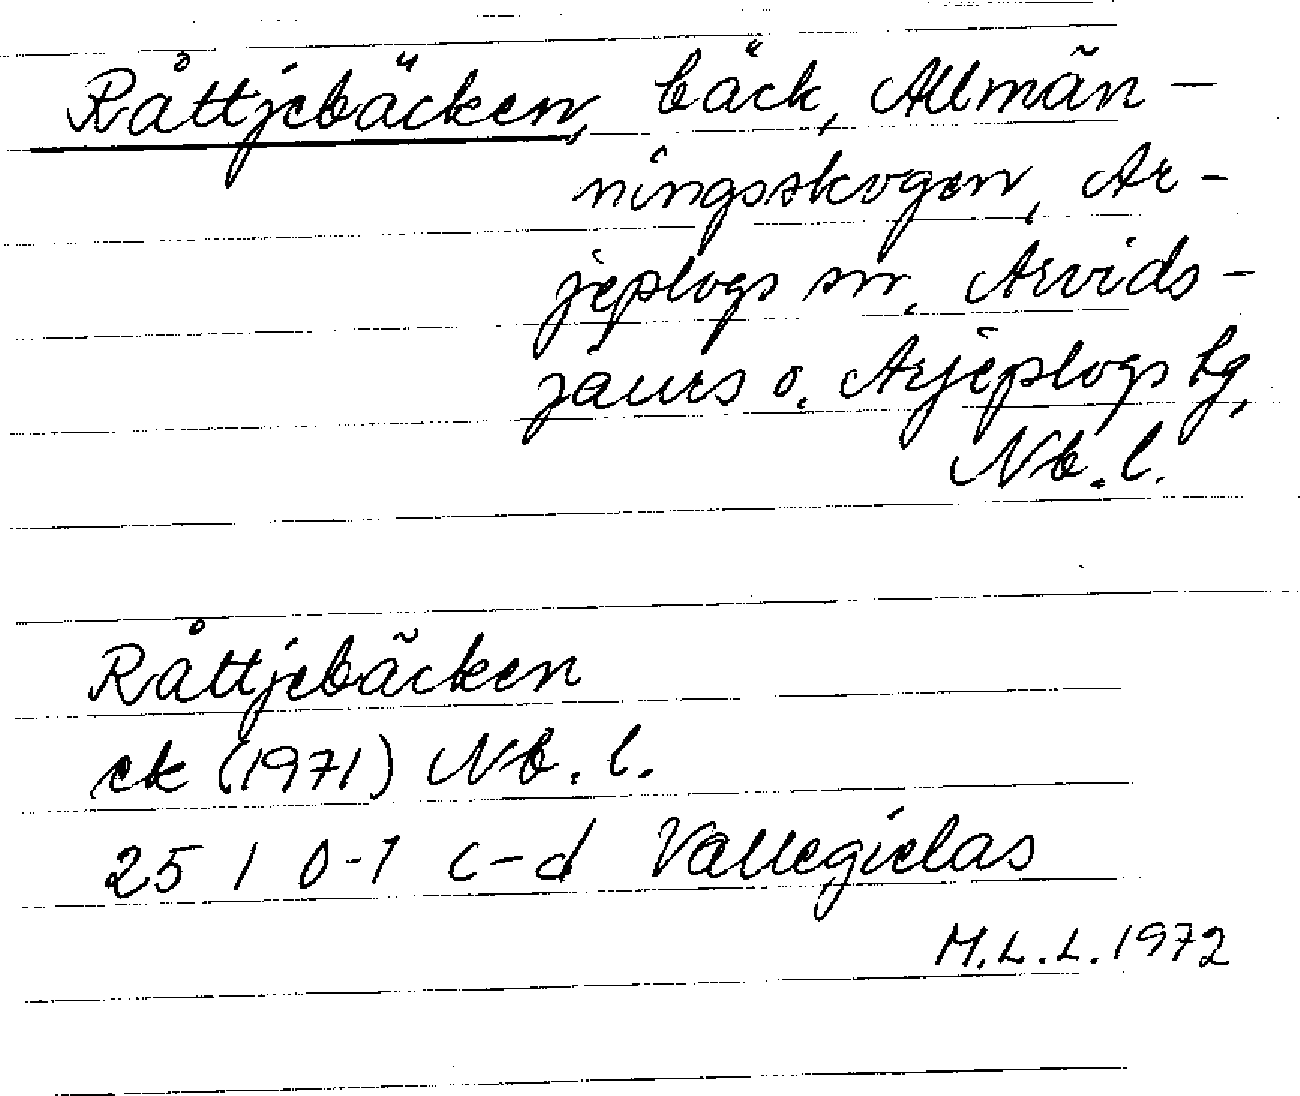 Råttjebäcken, bäck, Allmän-
ningsskogen, Ar-
jeplogs sn, Arvids-
jaurs o. Arjeplogs tg,
Nb. l.
Råttjebäcken
ek (1971) Nb. l.
25 I 0-1 c-d Vallegielas
M.L.L. 1972